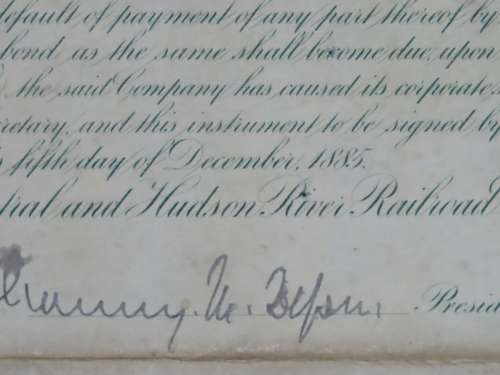 default of payment of any part thereof by
bond as the same shall become due, upon
the said Company has caused its corporate
retary, and this instrument to be signed by
fifth day of December, 1885.
tral and Hudson River Railroad
Chauncey M. Depew. Presid